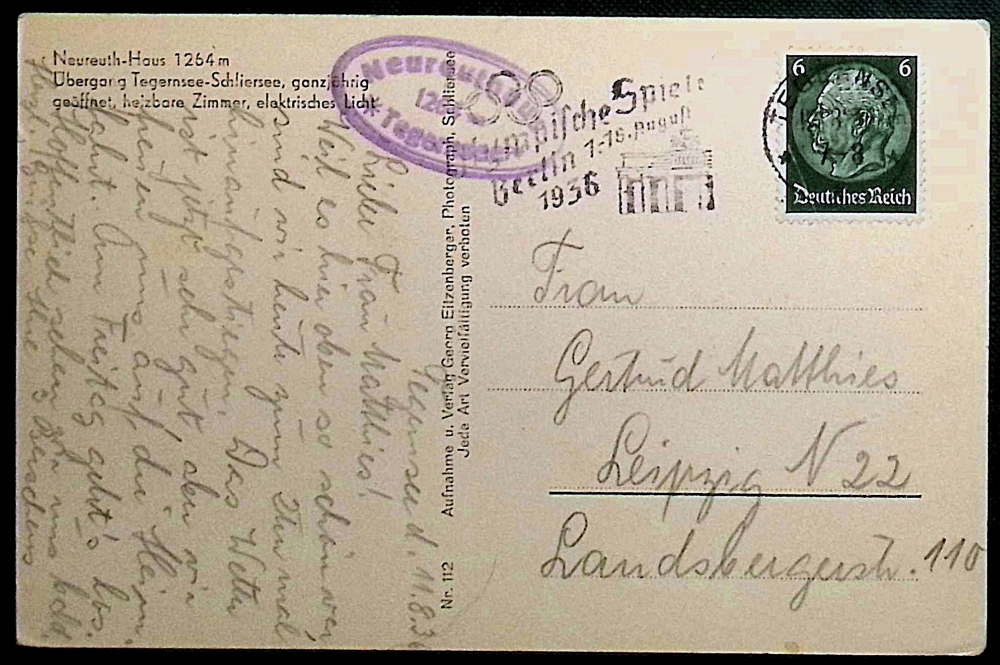 Neureuth-Haus 1264 m
Übergang Tegernsee-Schliersee, ganzjährig
geöffnet, heizbare Zimmer, elektrisches Licht
Neureuthhaus
126
Tegernsee
Olympische Spiele
Berlin 1-16. August
1936
TEGERNSEE
8
6 6
Deutches Reich
Tegernsee d. 11.8.36
Liebe Frau Matthies!
Weil es hier oben so schön war,
sind wir heute zum 2ten mal
hinaufgestiegen. Das Wetter
ist jetzt sehr gut aber wir
freuen uns auf die Heim-
fahrt. Am Freitag geht's los.
Hoffentlich sehen wir uns bald.
Herzl. Grüße Ihre
Nr. 112 Aufnahme u. Verlag Georg Eitzenberger, Photograph, Schliersee
Jede Art Vervielfältigung verboten
Frau
Gertrud Matthies
Leipzig N 22
Landsbergerstr. 110